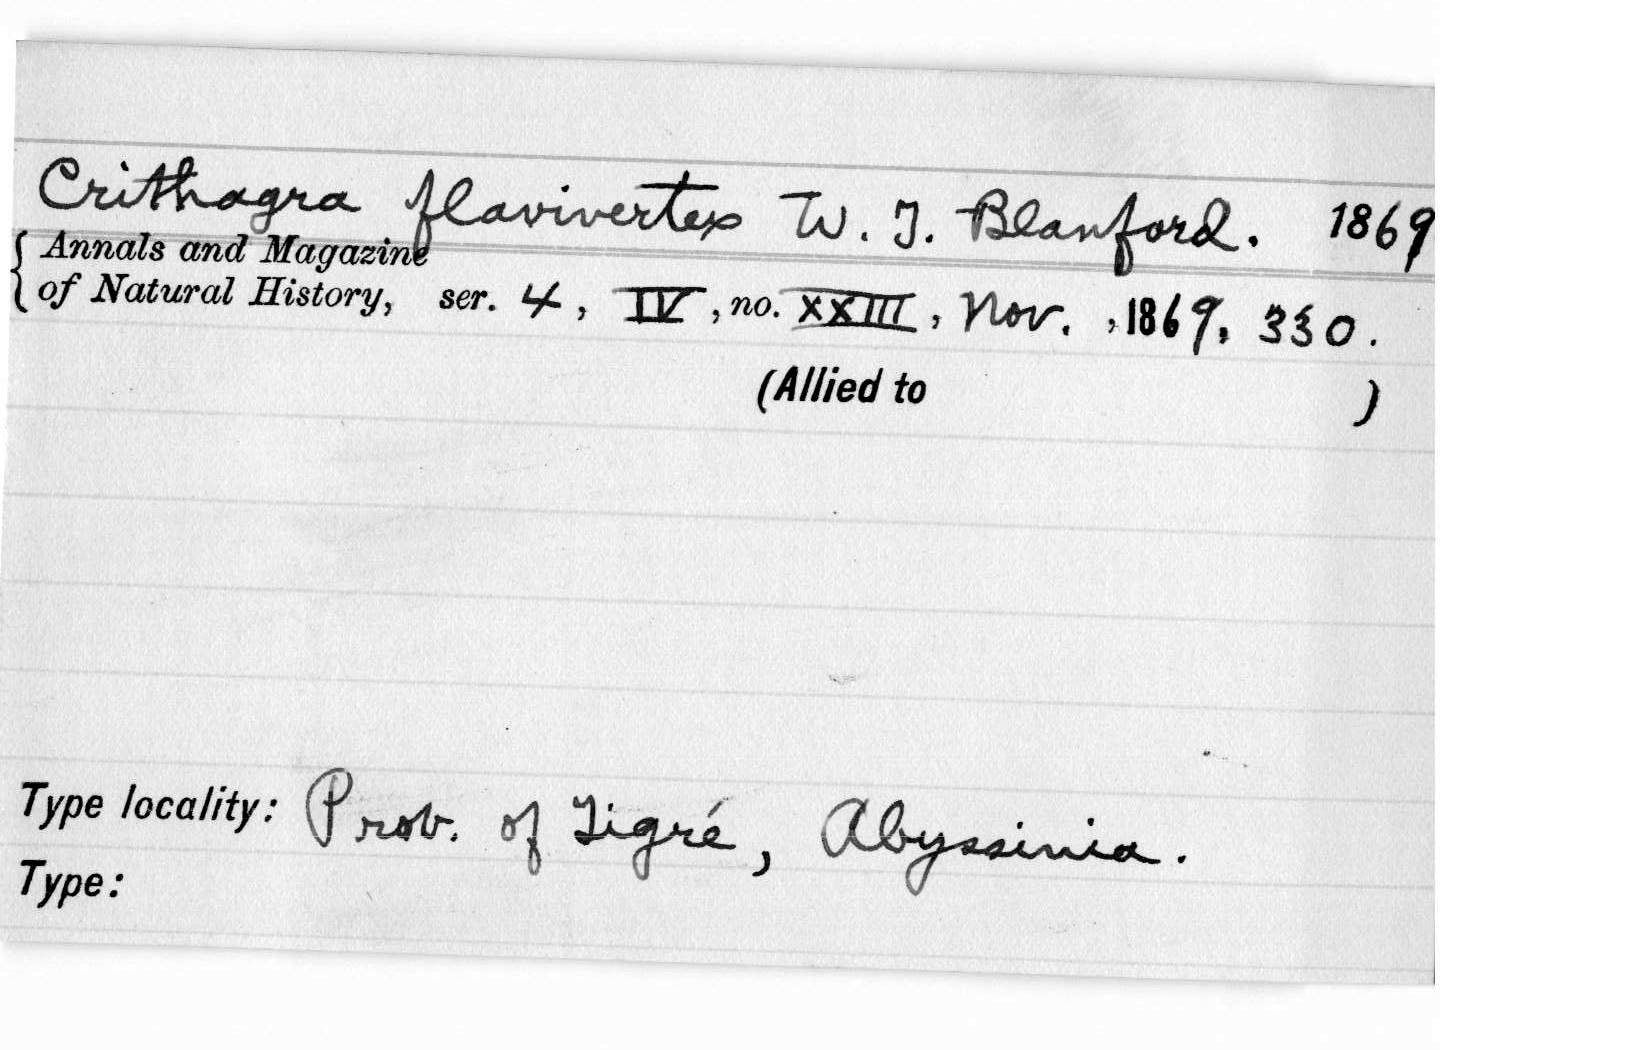 Crithagra flavivertex W. T. Blanford. 1869
{ Annals and Magazine
of Natural History, ser. 4, IV, no. XXIII, Nov., 1869, 330.
(Allied to )
Type locality: Prov. of Tigré, Abyssinia.
Type: